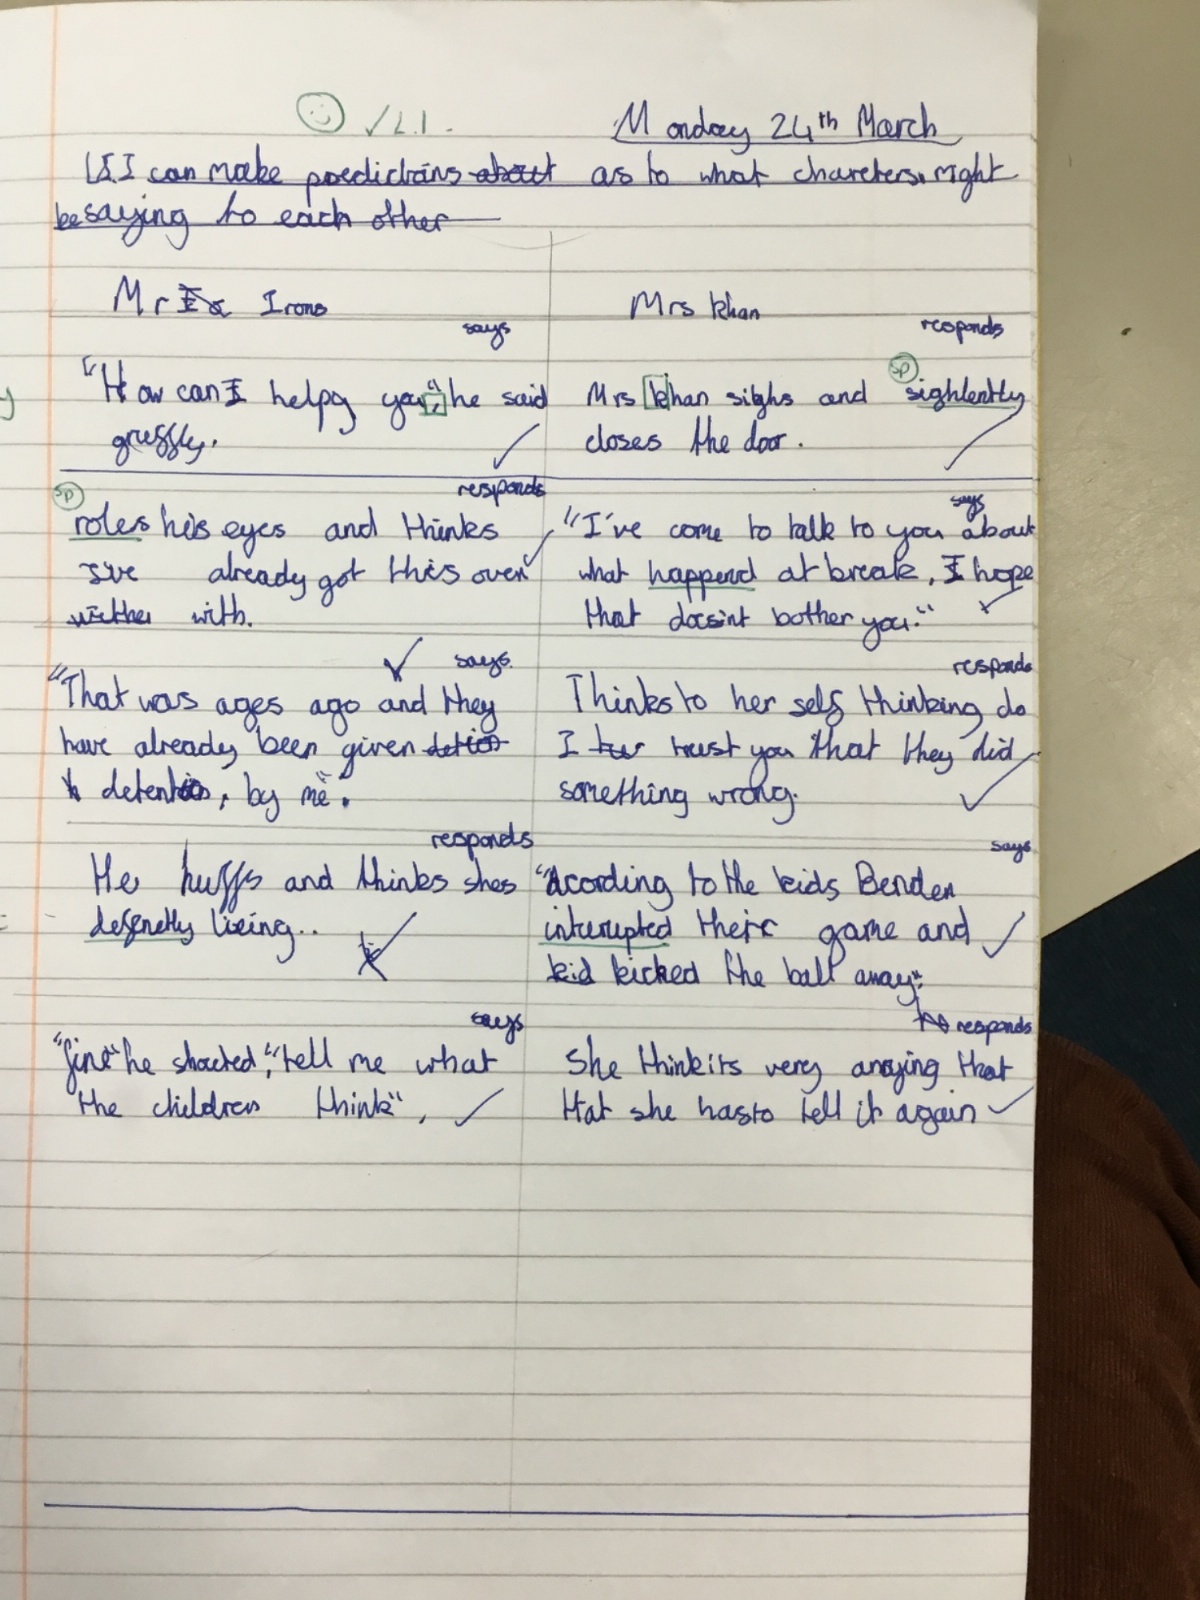 ✓ L.I.
Monday 24th March
L.I. I can make predictions about as to what charecters might
be saying to each other
Mr Irons
Mrs khan
says
responds
"How can I help you," he said
gruffly.
Mrs khan sighs and sp sighlently
closes the door.
responds
says
sp
roles his eyes and thinks
I've already got this over
with.
"I've come to talk to you about
what happend at break, I hope
that doesint bother you."
says
responds
"That was ages ago and they
have already been given
detention, by me".
Thinks to her self thinking do
I trust you that they did
something wrong.
responds
says
He huffs and thinks shes
defenetly lieing..
"Acording to the kids Benden
interupted there game and
kid kicked the ball away".
says
responds
"fine" he shouted, "tell me what
the children think",
She think its very anoying that
that she has to tell it again